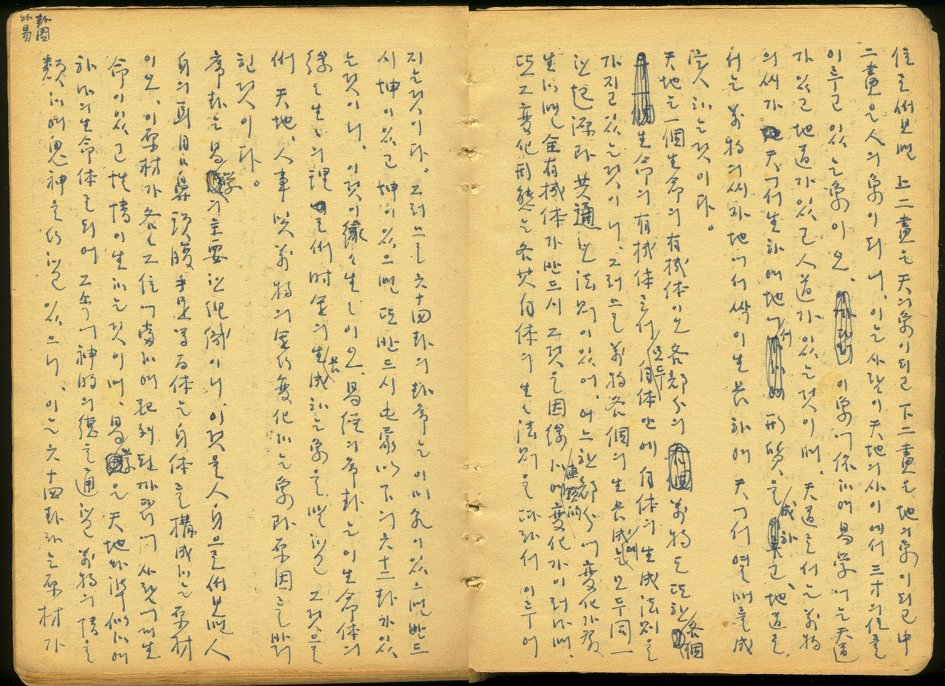 位로써보면 上二畫은 天의象이되고 下二畫은 地의象이되고 中
二畫은 人의象이되니, 이는 사람이 天地의사이에서 三才의位를
이루고 있는象이오. 이象에依하여 易學에는 天道
가있고 地道가있고 人道가있는것이며, 天道로서는 萬物
의씨가 天에서生하며 地에서 形質을 成하고, 地道로
서는 萬物의씨가 地에서 싹이生長하며 天에서 열매를成
하는것이다.
天地는 一個生命의有機体이오 各部分의 萬物도 또한 各個
生命의有機体로서 모두 自体안에 自体의生成法則을
가지고있는것이니, 그러므로 萬物各個의生長成에는 모두同一
한起源과 共通한法則이있어, 어느한部分에 變化가發
生하면 全有機体가 반드시 그것을因緣하여 變化가이러나며,
또그變化形態는 各其自体의生生法則을 따라서 이루어
지는것이다. 그러므로 六十四卦의卦序는 이미乾이있으면 반드
시坤이있고 坤이있으면 또반드시 屯蒙以下의六十二卦가있
는것이니, 이것이 緣緣生生이오, 易經의序卦는 이生命体의
緣緣生生의理로써 時空의生長成하는象을 그것으로
써 天地, 人事及萬物의 變化하는象과 原因을 밝
힌것이다.
序卦는 易學의主要한組織이니, 이것을人身으로써보면 人
身의耳目口鼻頭腹手足等百体는 身体를構成하는 原材
이오, 이原材가各各그位에當하여 配列된까닭에 사람에게生
命이있고 性情이生하는것이며, 易學은 天地와準似하여
하나의生命体로되어 그속에神明의德을通하고 萬物의情을
類하며鬼神을 行하고있으니, 이는六十四卦라는原材가